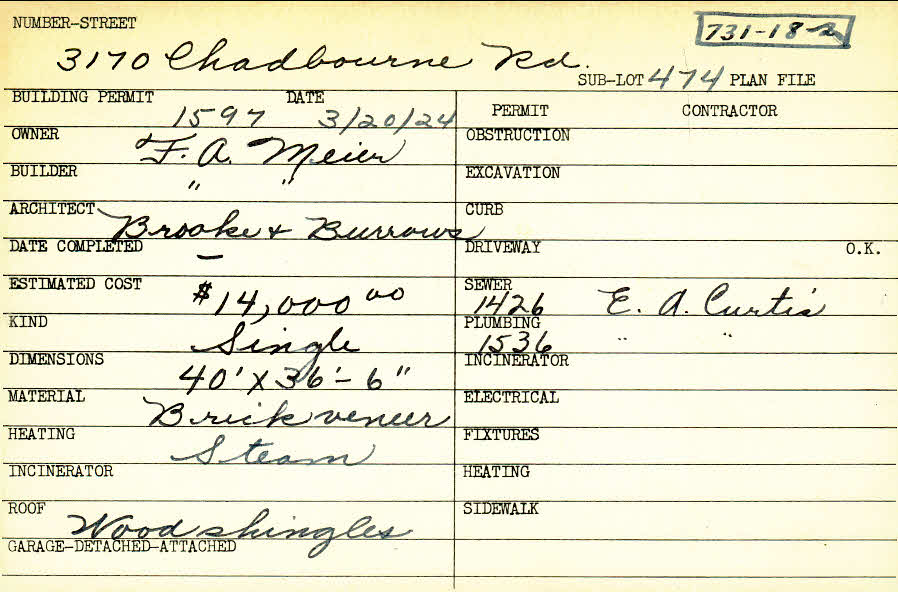 NUMBER-STREET
731-18-2
3170 Chadbourne Rd.
SUB-LOT 474 PLAN FILE
BUILDING PERMIT DATE
1597 3/20/24
OWNER
F. A. Meier
BUILDER
" "
ARCHITECT
Brooke & Burrows
DATE COMPLETED
—
ESTIMATED COST
$14,000 00
KIND
Single
DIMENSIONS
40' X 36'-6"
MATERIAL
Brick veneer
HEATING
Steam
INCINERATOR
ROOF
Wood shingles
GARAGE-DETACHED-ATTACHED
PERMIT CONTRACTOR
OBSTRUCTION
EXCAVATION
CURB
DRIVEWAY O.K.
SEWER
1426 E. A. Curtis
PLUMBING
1536 " "
INCINERATOR
ELECTRICAL
FIXTURES
HEATING
SIDEWALK